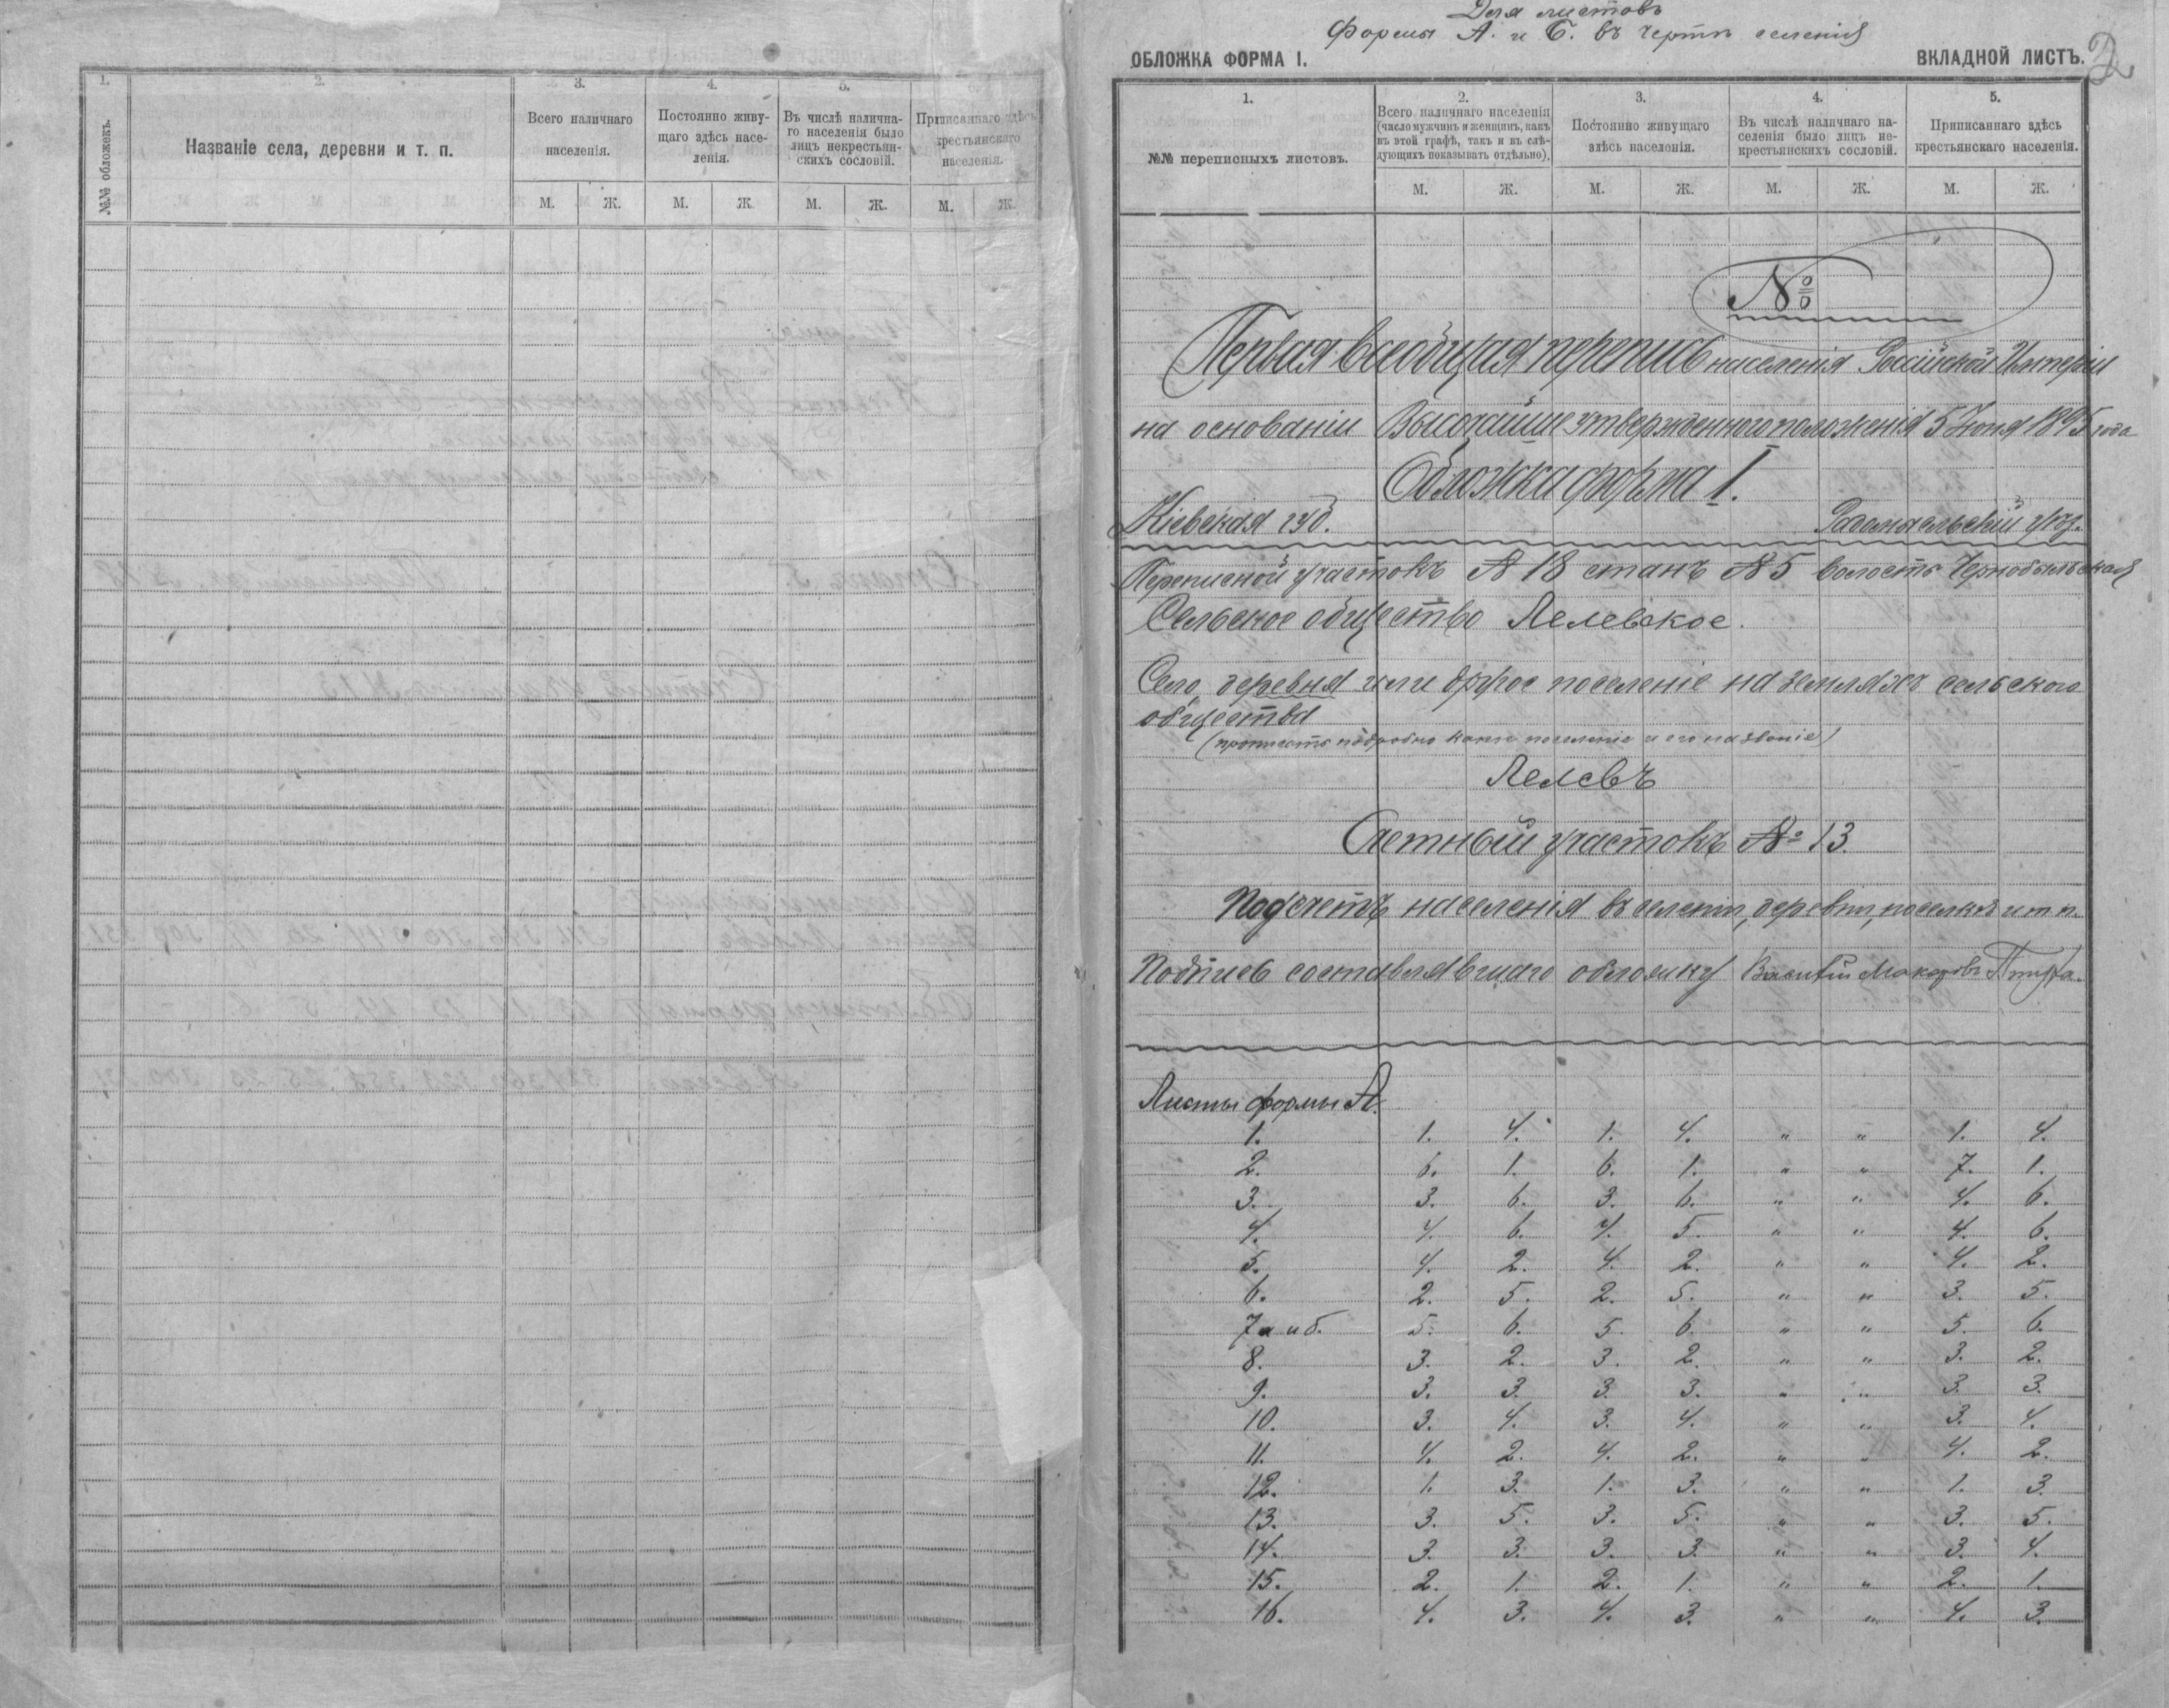 1. 2. 3. 4. 5.
№№ обложекъ.
Названіе села, деревни и т. п.
Всего наличнаго населенія.
Постоянно живу-
щаго здѣсь насе-
ленія.
Въ числѣ налична-
го населенія было
лицъ некрестьян-
скихъ сословій.
Приписаннаго здѣсь
крестьянскаго
населенія.
М. Ж. М. Ж. М. Ж. М. Ж.
Для листовъ
Формы А. и Б. въ чертѣ селенія
2
ОБЛОЖКА ФОРМА I. ВКЛАДНОЙ ЛИСТЪ.
1. 2. 3. 4. 5.
№№ переписныхъ листовъ.
Всего наличнаго населенія
(число мужчинъ и женщинъ, какъ
въ этой графѣ, такъ и въ слѣ-
дующихъ показывать отдѣльно).
Постоянно живущаго
здѣсь населенія.
Въ числѣ наличнаго на-
селенія было лицъ не-
крестьянскихъ сословій.
Приписаннаго здѣсь
крестьянскаго населенія.
М. Ж. М. Ж. М. Ж. М. Ж.
№
Первая всеобщая перепись населенія Россійской Имперіи
на основаніи Высочайше утвержденного положенія 5 Іюня 1895 года
Обложка форма I.
Кіевская губ. Радомысльскій уѣз.
Переписной участокъ № 18 станъ № 5 волость Чернобыльская
Сельское общество Лелевское.
Село, деревня или другое поселеніе на земляхъ сельского
общества
(прописать подробно какое поселеніе и его названіе)
Лелевъ
Счетный участокъ № 13.
Подсчетъ населенія въ селеніи, деревни, поселкѣ и т. п.
Подпись составлявшаго обложку Василій Макаровъ
Листы формы А.
1. 1. 4. 1. 4. " " 1. 4.
2. 6. 1. 6. 1. " " 7. 1.
3. 3. 6. 3. 6. " " 4. 6.
4. 4. 6. 4. 5. " " 4. 6.
5. 4. 2. 4. 2. " " 4. 2.
6. 2. 5. 2. 5. " " 3. 5.
7 а и б. 5. 6. 5. 6. " " 5. 6.
8. 3. 2. 3. 2. " " 3. 2.
9. 3. 3. 3. 3. " " 3. 3.
10. 3. 4. 3. 4. " " 3. 4.
11. 4. 2. 4. 2. " " 4. 2.
12. 1. 3. 1. 3. " " 1. 3.
13. 3. 5. 3. 5. " " 3. 5.
14. 3. 3. 3. 3. " " 3. 4.
15. 2. 1. 2. 1. " " 2. 1.
16. 4. 3. 4. 3. " " 4. 3.